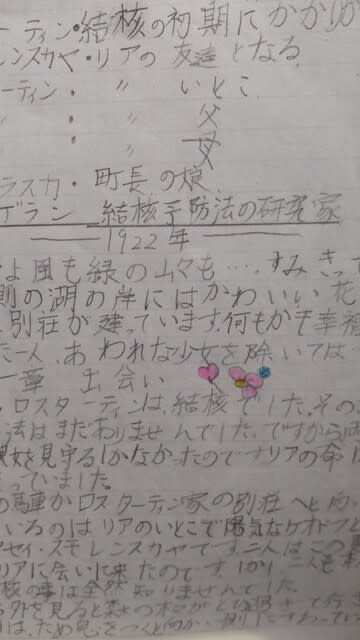 ーティン・結核の初期にかかり
レンスカヤ・リアの友達となる
ーティン・〃 いとこ
・〃 父
・〃 母
ラスカ・町長の娘
ゲラン 結核予防法の研究家
1922年
よ風も緑の山々も…すみきって
側の湖の岸にはかわいい花
別荘が建っています。何もかも幸福
た一人、あわれな少女を除いては
一章 出会い
ロスターティンは、結核でした。その
法はまだありませんでした。ですから両
彼女を見守るしかなかったのですリアの命
っていました。
の馬車がロスターティン家の別荘へと向
いるのはリアのいとこで陽気な
アセイ・スモレンスカヤです二人はこの
リアに会いに来たのです。しかし二人とも
核の事は全然知りませんでした。
外を見ると
は、ため息をつくと